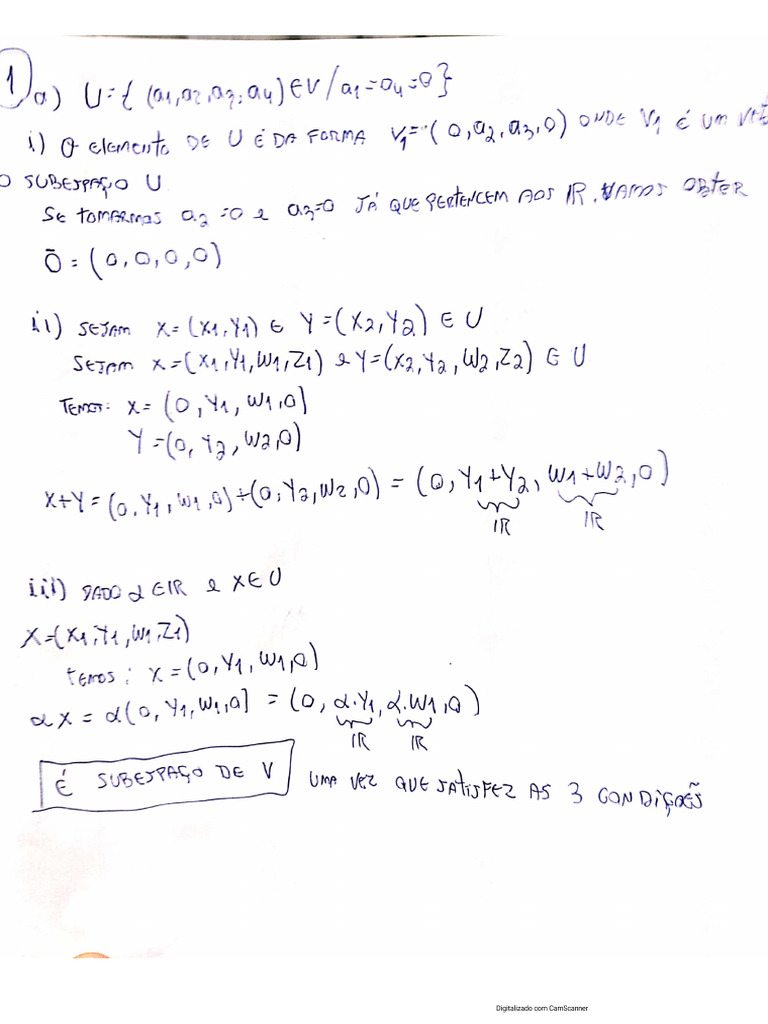 1
a) U={ (a1,a2,a3,a4) ∈ V / a1=a4=0}
i) O elemento DE U É DA FORMA V1=(0,a2,a3,0) ONDE V1 É UM
O SUBESPAÇO U
Se TOMARMOS a2=0 e a3=0 JÁ QUE PERTENCEM AOS IR. VAMOS OBTER
Ō=(0,0,0,0)
ii) SEJAM X=(X1,Y1) E Y=(X2,Y2) ∈ U
SEJAM X=(X1,Y1,W1,Z1) e Y=(X2,Y2,W2,Z2) ∈ U
TEMOS: X=(0,Y1,W1,0)
Y=(0,Y2,W2,0)
X+Y=(0,Y1,W1,0)+(0,Y2,W2,0)=(0,Y1+Y2,W1+W2,0)
IR IR
iii) DADO α ∈ IR e X ∈ U
X=(X1,Y1,W1,Z1)
temos: X=(0,Y1,W1,0)
αX=α(0,Y1,W1,0]=(0,α.Y1,α.W1,0)
IR IR
É SUBESPAÇO DE V UMA VEZ QUE SATISFEZ AS 3 CONDIÇÕES
Digitalizado com CamScanner